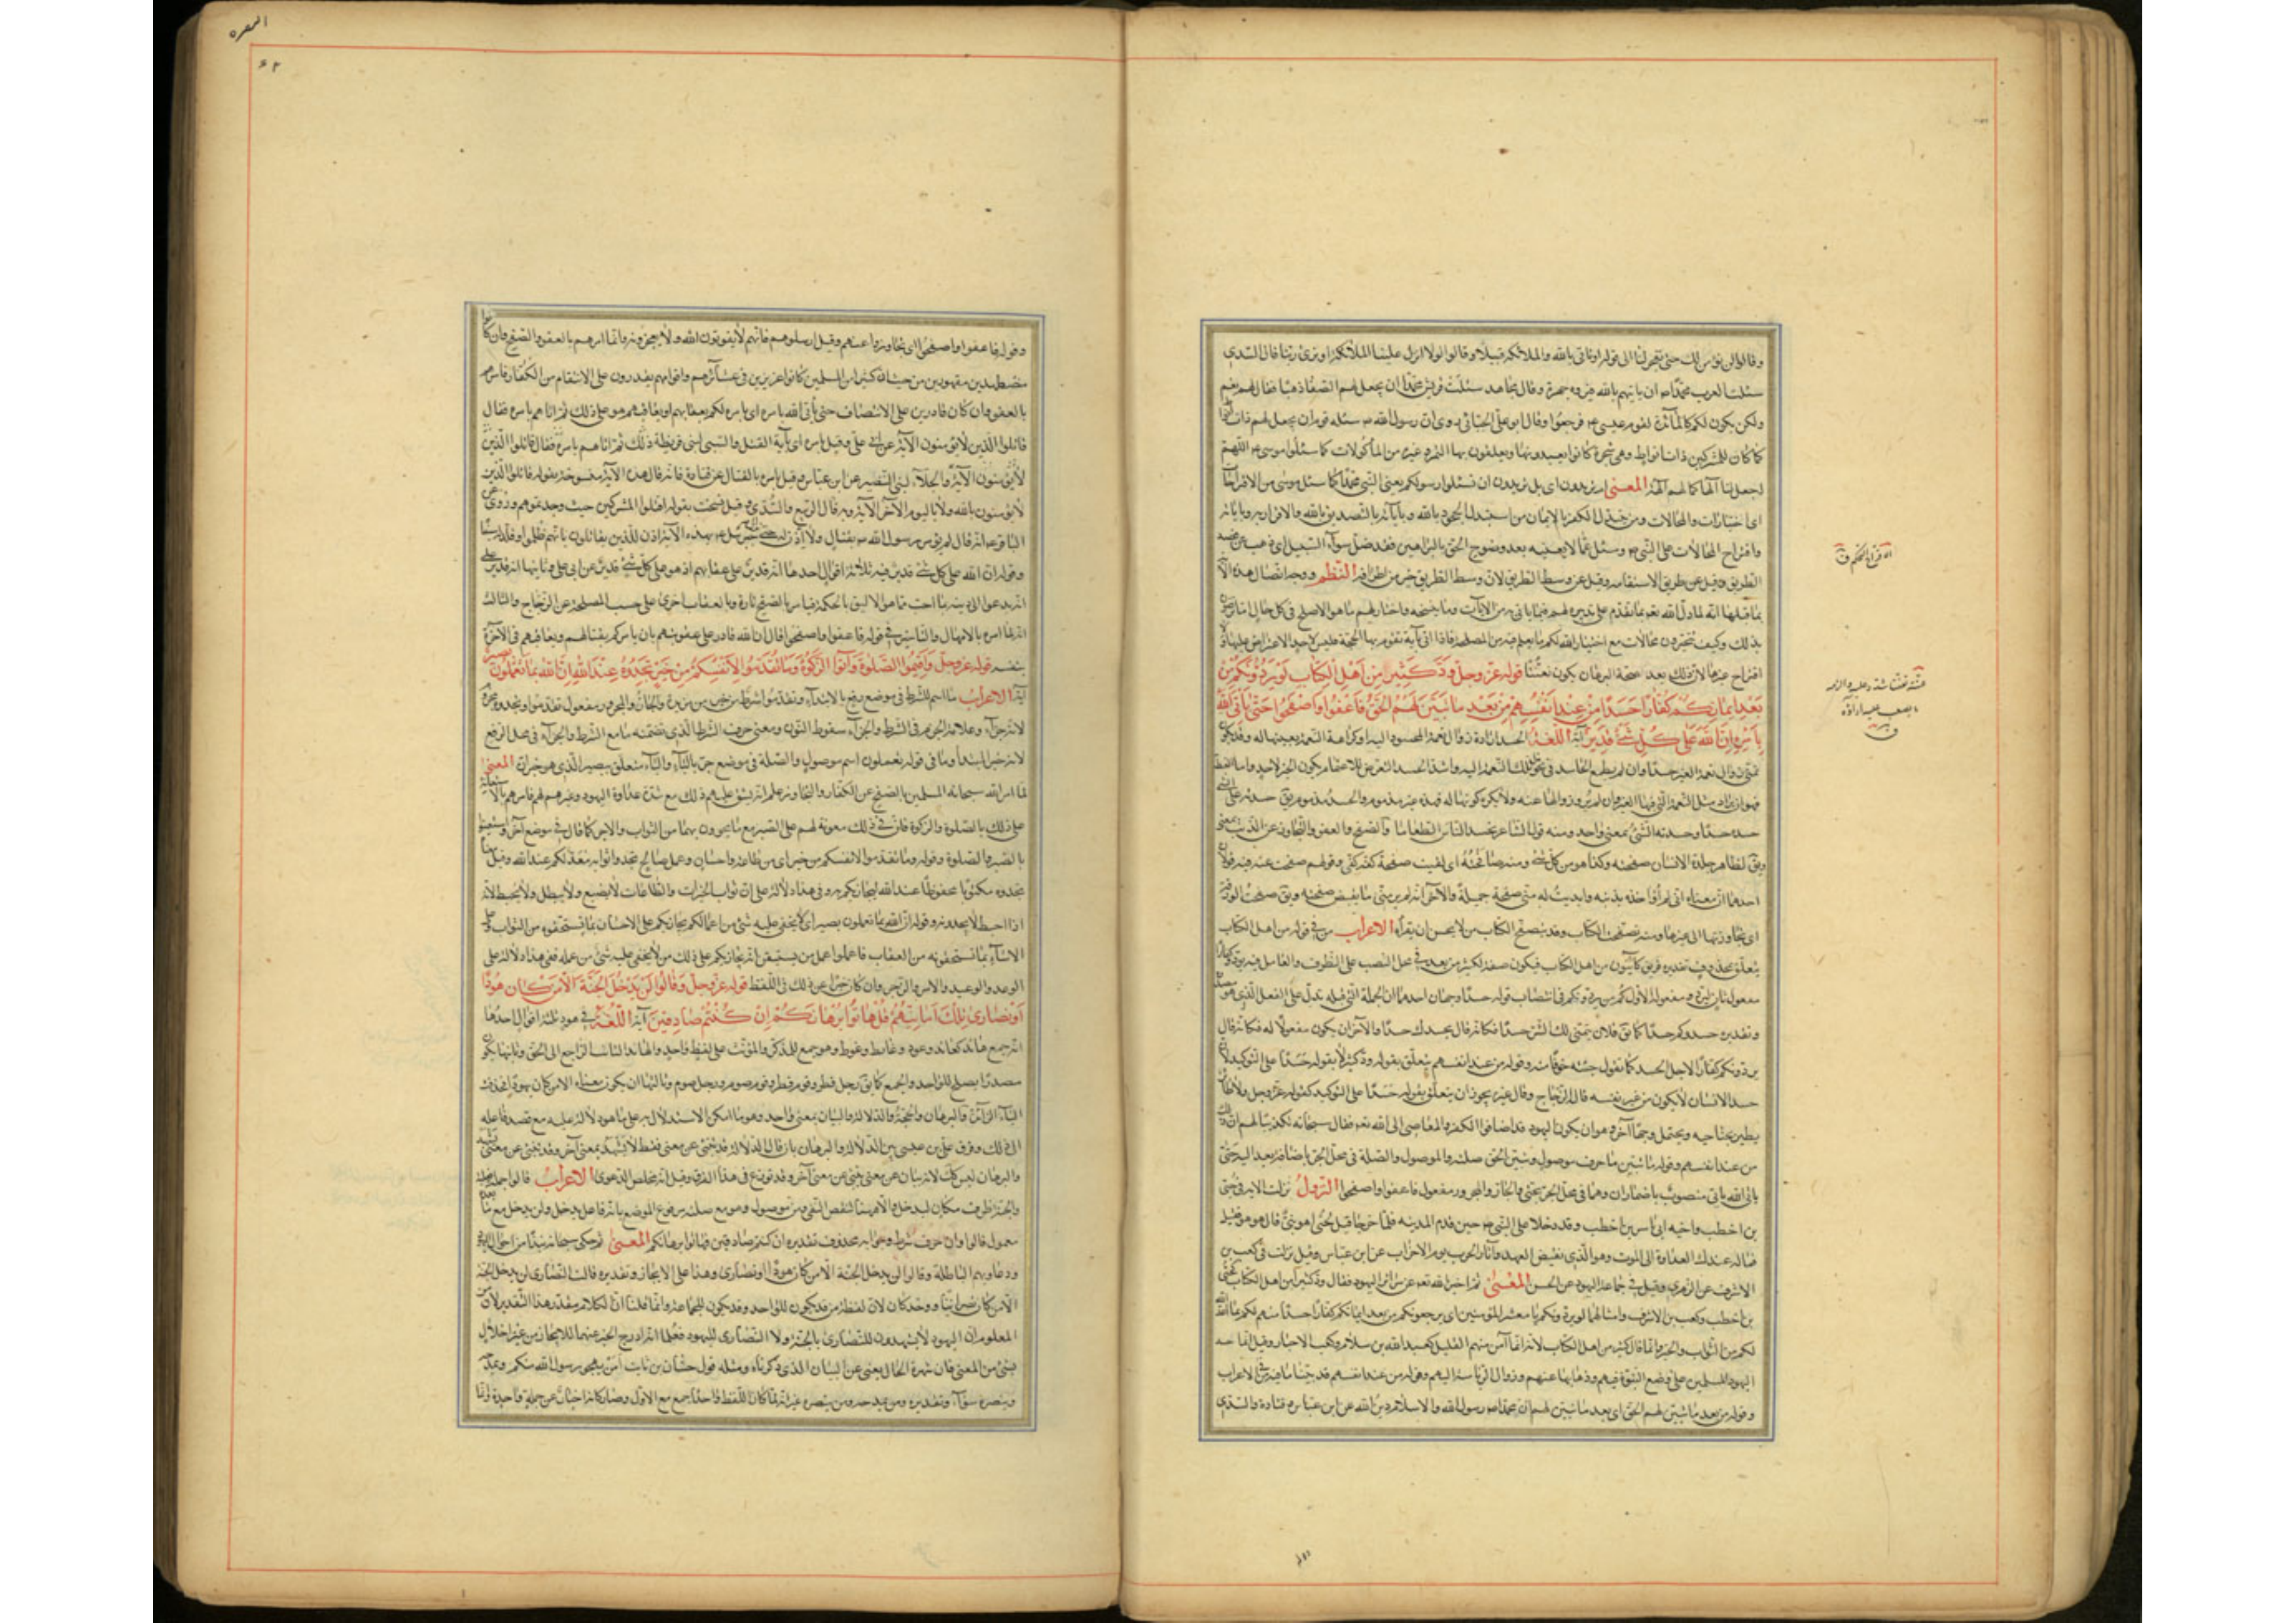 وقالوا لن نؤمن لك حتى تفجر لنا الى قوله او تأتى بالله والملائكة قبيلا وقالوا لولا انزل علينا الملائكة او نرى ربنا قال السدى
سئلت العرب محمدا ص ان يأتيهم بالله فيروه جهرة وقال مجاهد سئلت قريش محمدا ان يجعل لهم الصفا ذهبا فقال لهم نعم
ولكن يكون لكم كالمائدة لقوم عيسى ع فرجعوا وقال ابو على الجبائى روى ان رسول الله ص سئله قوم ان يجعل لهم ذات انواط
كما كان للمشركين ذات انواط وهى شجرة كانوا يعبدونها ويعلقون بها التمر وغيره من المأكولات كما سئلوا موسى ع اللهم
اجعل لنا الها كما لهم آلهة المعنى ام تريدون اى بل تريدون ان تسئلوا رسولكم يعنى النبى محمدا كما سئل موسى من الاقتراحات
اى اختبارات والمحالات ومن يتبدل الكفر بالايمان من استبدل الجحود بالله وبآياته بالتصديق بالله والاقرار به وبآياته
واقتراح المحالات على النبى ص وسئل عما لا يعنيه بعد وضوح الحق بالبراهين فقد ضل سواء السبيل اى ذهب عن قصد
الطريق وقيل عن طريق الاستقامة وقيل عن وسط الطريق لان وسط الطريق خير من اطرافه النظم ووجه اتصال هذه الآية
بما قبلها انه لما دل الله بقوله بما تقدم على تدبيره لهم فيما يأتى به من الآيات وما ينسخه واختياره لهم ما هو الاصلح فى كل حال
بذلك وكيف تتخيرون محالات مع اختيار الله لكم ما يعلم فيه من المصلحة فاذا اتى بآية تقوم بها الحجة فليس لاحد الاعتراض عليها ولا
اقتراح غيرها لان ذلك بعد صحة البرهان يكون تعنتا قوله عز وجل ود كثير من اهل الكتاب لو يردونكم من
بعد ايمانكم كفارا حسدا من عند انفسهم من بعد ما تبين لهم الحق فاعفوا واصفحوا حتى يأتى الله
بامره ان الله على كل شئ قدير آية اللغة الحسد ارادة زوال نعمة المحسود اليه او كراهة النعمة
حسده حسدا وحسدته الشئ بمعنى واحد ومنه قول الشاعر يحسد الناس الطعاما والصفح والعفو والتجاوز عن الذنب بمعنى
ويق لظاهر جلدة الانسان صفحته وكذا هو من كل شئ ومنه صافحته اى لقيت صفحة كفه كفى وقولهم صفحت عنه فيه قولان
احدهما ان معناه انى لم أؤاخذه بذنبه وابديت له منى صفحة جميلة والآخر انه لم ير منى ما يقبض صفحته ويق صفحت الورقة
اى تجاوزتها الى غيرها ومنه تصفحت الكتاب وقد يتصفح الكتاب من لا يحسن ان يقرأه الاعراب من فى قوله من اهل الكتاب
يتعلق بمحذوف تقديره فريق كائنون من اهل الكتاب فيكون صفة لكثير من بعد فى محل النصب على الظرف والعامل فيه يرد وكفارا
مفعول ثان ليرد ومفعوله الاول كم من يردونكم فى انتصاب قوله حسدا وجهان احدهما ان الجملة التى قبله تدل على الفعل الذى هو مصدره
وتقديره حسدوكم حسدا كما يق فلان يتمنى لك الشر حسدا فكانه قال يحسدك حسدا والآخر ان يكون مفعولا له فكانه قال
يردونكم كفارا لاجل الحسد كما تقول جئته خوفا منه وقوله من عند انفسهم يتعلق بقوله ود كثير لا بقوله حسدا على التوكيد لان
حسد الانسان لا يكون من غير نفسه قال الزجاج وقال غيره يجوز ان يتعلق بقوله حسدا على التوكيد كقوله عز وجل ولا طائر
يطير بجناحيه ويحتمل وجها آخر وهو ان يكون اليهود قد اضافوا الكفر والمعاصى الى الله تعالى فقال سبحانه تكذيبا لهم ان ذلك
من عند انفسهم وقوله ما تبين ما حرف موصول وتبين الحق صلته والموصول والصلة فى محل الجر باضافة بعد اليه حتى
يأتى الله يأتى منصوب باضمار ان وهما فى محل الجر بحتى والجار والمجرور مفعول فاعفوا واصفحوا النزول نزلت الآية فى حيى
بن اخطب واخيه ابى ياسر بن اخطب وقد دخلا على النبى ص حين قدم المدينة فلما خرجا قيل لحيى اهو نبى قال هو هو فقيل
ما له عندك قال العداوة الى الموت وهو الذى نقض العهد واثار الحرب يوم الاحزاب عن ابن عباس وقيل نزلت فى كعب بن
الاشرف عن الزهرى وقيل فى جماعة اليهود عن الحسن المعنى ثم اخبر الله تعالى عن سرائر اليهود فقال ود كثير من اهل الكتاب كحيى
بن اخطب وكعب بن الاشرف وامثالهما لو يردونكم يا معشر المؤمنين اى يرجعونكم من بعد ايمانكم كفارا حسدا منهم لكم بما اعد الله
لكم من الثواب والخير وانما قال كثير من اهل الكتاب لانه انما آمن منهم القليل كعبد الله بن سلام وكعب الاحبار وقيل انما حسد
اليهود المسلمين على وضع النبوة فيهم وذهابها عنهم وزوال الرياسة اليهم وقوله من عند انفسهم قد بينا ما فيه فى الاعراب
وقوله من بعد ما تبين لهم الحق اى بعد ما تبين لهم ان محمدا ص رسول الله والاسلام دين الله عن ابن عباس وقتادة والسدى
البقره
وقوله فاعفوا واصفحوا اى تجاوزوا عنهم وقيل ارسلوهم فانهم لا يفوتون الله ولا يعجزونه وانما امرهم بالعفو والصفح وان كانوا
مضطهدين مقهورين من حيث ان كثيرا من المسلمين كانوا عزيزين فى عشائرهم واقوامهم يقدرون على الانتقام من الكفار فامرهم
بالعفو وان كان قادرين على الانتصاف حتى يأتى الله بامره اى بامره لكم بعقابهم او يعاقبهم هو على ذلك ثم اتاهم بامره فقال
قاتلوا الذين لا يؤمنون الآية عن ابى على وقيل بامره اى بآية القتل والسبى لبنى قريظة
لا يؤمنون الآية والجلاء لبنى النضير عن ابن عباس وقيل بامره بالقتال عن قتادة فانه قال هذه الآية منسوخة بقوله قاتلوا الذين
لا يؤمنون بالله ولا باليوم الآخر الآية وبه قال الربيع والسدى وقيل نسخت بقوله اقتلوا المشركين حيث وجدتموهم وروى عن
الباقر ع انه قال لم يؤمر رسول الله ص بقتال ولا اذن له حتى نزل جبرئيل ع بهذه الآية اذن للذين يقاتلون بانهم ظلموا وقلده سيفا
وقوله ان الله على كل شئ قدير فيه ثلاثة اقوال احدها انه قدير على عقابهم اذ هو على كل شئ قدير عن ابى على وثانيها انه قدير على
ان يدعو الى دينه بما احب مما هو الاليق بالحكمة فيامر بالصفح تارة وبالعقاب اخرى على حسب المصلحة عن الزجاج والثالث
انه لما امر بالامهال والتأخير فى قوله فاعفوا واصفحوا قال ان الله قادر على عقوبتهم بان يأمركم بقتالهم ويعاقبهم فى الآخرة
بنفسه قوله عز وجل واقيموا الصلوة وآتوا الزكوة وما تقدموا لانفسكم من خير تجدوه عند الله ان الله بما تعملون بصير
آية الاعراب ما اسم للشرط فى موضع رفع بالابتداء وتقدموا شرط من خير من مزيدة والجار والمجرور مفعول تقدموا وتجدوه مجزوم
لانه جزاء وعلامة الجزم فى الشرط والجزاء سقوط النون ومعنى حرف الشرط الذى تضمنه ما مع الشرط والجزاء فى محل الرفع
لانه خبر المبتدا وما فى قوله تعملون اسم موصول والصلة فى موضع جر بالباء والباء متعلق ببصير الذى هو خبر ان المعنى
لما امر الله سبحانه المسلمين بالصفح عن الكفار والتجاوز علم انه يشق عليهم ذلك مع شدة عداوة اليهود وغيرهم لهم فامرهم بالاستعانة
على ذلك بالصلوة والزكوة فان فى ذلك معونة لهم على الصبر مع ما يحوزون بهما من الثواب والاجر كما قال فى موضع آخر واستعينوا
بالصبر والصلوة وقوله وما تقدموا لانفسكم من خير اى من طاعة واحسان وعمل صالح تجدوا ثوابه معدا لكم عند الله وقيل معناه
تجدوه مكتوبا محفوظا عند الله ليجازيكم به وفى هذا دلالة على ان ثواب الخيرات والطاعات لا يضيع ولا يبطل ولا يحبط لانه
اذا احبط لا يجدونه وقوله ان الله بما تعملون بصير اى لا يخفى عليه شئ من اعمالكم يجازيكم على الاحسان بما تستحقونه من الثواب وعلى
الاساءة بما تستحقونه من العقاب فاعملوا عمل من يستيقن انه يجازيكم على ذلك من لا يخفى عليه شئ من عمله ففى هذا دلالة على
الوعد والوعيد والامر والزجر وان كان خبرا عن ذلك فى اللفظ قوله عز وجل وقالوا لن يدخل الجنة الا من كان هودا
او نصارى تلك امانيهم قل هاتوا برهانكم ان كنتم صادقين آية اللغة فى هود ثلثة اقوال احدها
انه جمع هائد كعائد وعوذ وعائط وعوط وهو جمع للمذكر والمؤنث على لفظ واحد والهائد التائب الراجع الى الحق وثانيها ان يكون
مصدرا يصلح للواحد والجمع كما يق رجل فطر وقوم فطر وقوم صوم ورجل صوم وثالثها ان يكون معناه الا من كان يهودا فحذفت
الياء الزائدة والبرهان والحجة والدلالة والبيان بمعنى واحد وهو ما امكن الاستدلال به على ما هو دلالة عليه مع قصد فاعله
الى ذلك وفرق على بن عيسى بين الدلالة والبرهان بان قال الدلالة قد تنبئ عن معنى فقط لا يشهد بمعنى آخر وقد تنبئ عن معنى يشهد بمعنى آخر
والبرهان ليس كذلك لانه بيان عن معنى ينبئ عن معنى آخر وقد نوزع فى هذا الفرق وقيل انه محض الدعوى الاعراب قالوا جملة فعلية
والجنة ظرف مكان ليدخل والا هيهنا لنقض النفى ومن موصول وهو مع صلته مرفوع الموضع بانه فاعل يدخل ولن يدخل مع ما بعده
معمول قالوا وان حرف شرط وجوابه محذوف تقديره ان كنتم صادقين فهاتوا برهانكم المعنى ثم حكى سبحانه نبذا من اقوال اليهود
ودعاويهم الباطلة وقالوا لن يدخل الجنة الا من كان هودا او نصارى وهذا على الايجاز وتقديره قالت النصارى لن يدخل الجنة
الا من كان نصرانيا ووحد كان لان لفظة من قد يكون للواحد وقد يكون للجماعة وانما قلنا ان الكلام مقدر هذا التقدير لان من
المعلوم ان اليهود لا يشهدون للنصارى بالجنة ولا النصارى لليهود فعلمنا انه ادرج الخبر عنهما للايجاز من غير اخلال
بشئ من المعنى فان شهرة الحال يغنى عن البيان الذى ذكرناه ومثله قول حسان بن ثابت امن يهجو رسول الله منكم ويمدحه
وينصره سواء وتقديره ومن يمدحه ومن ينصره غير انه لما كان اللفظ واحدا جمع مع الاول وصار كانه اخبار عن جملة واحدة وانما